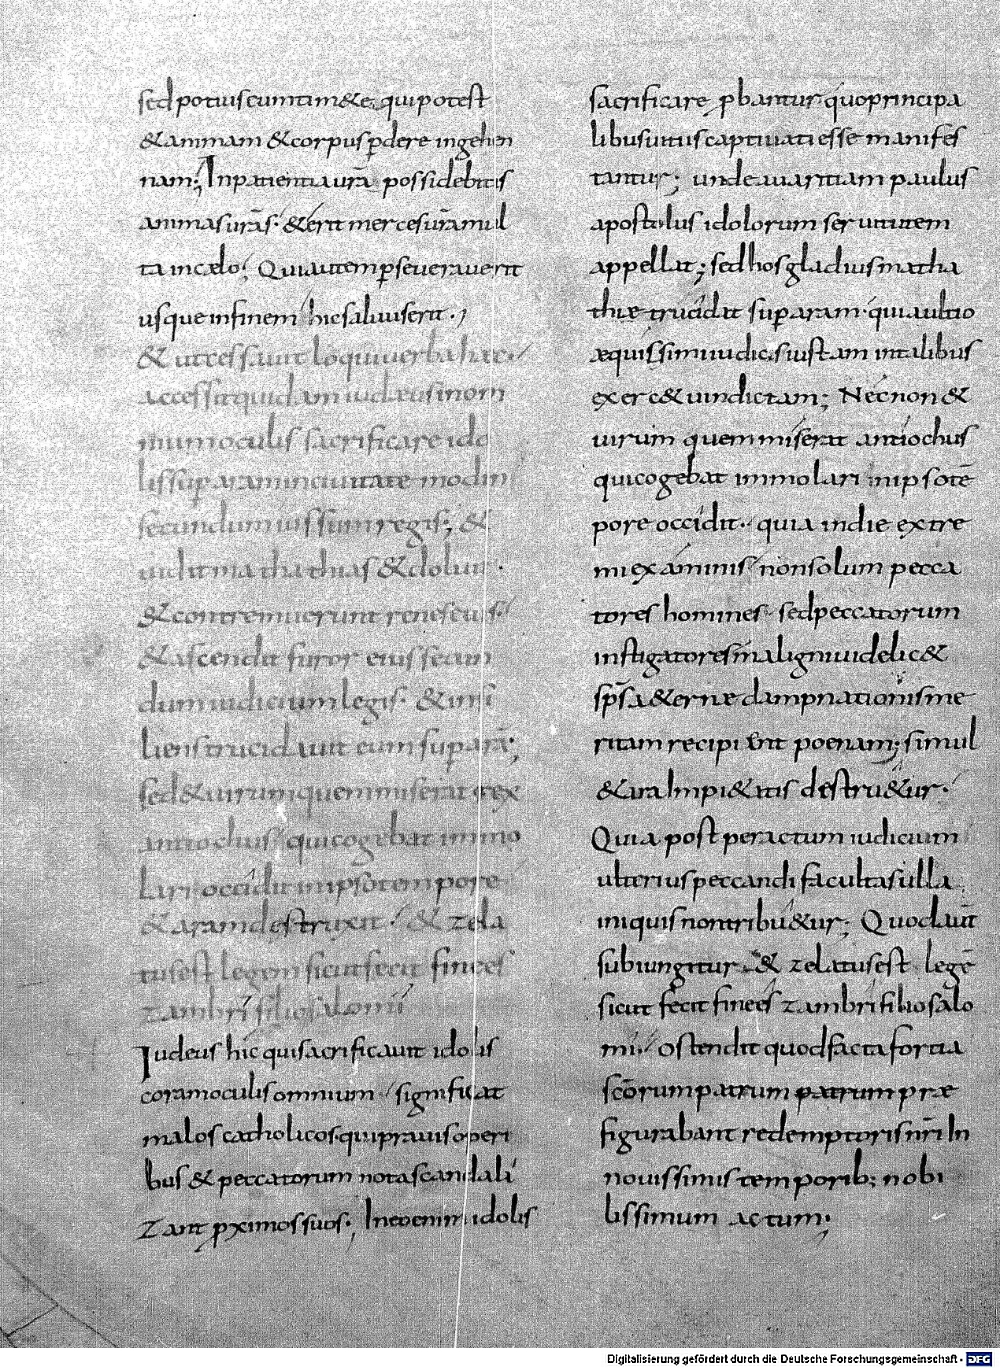 sed potius eum tim&e, qui potest
& animam & corpus p̱dere in gehen
nam; In patientia ur̄a possidebitis
animas ur̄as. & erit merces ur̄a mul
ta in cælo; Qui autem p̱severaverit
usque in finem hic salvus erit.
& ut cessauit loqui uerba haec.
accessit quidam iudæus in om
nium oculis sacrificare ido
lis sup̱ aram in ciuitate modin
secundum iussum regis; &
uidit mathathias & doluit.
& contremuerunt renes eius.
& ascendit furor eius secun
dum iudicium legis. & insi
liens trucidauit eum sup̱ arā;
sed & uirum quem miserat rex
antiochus qui cogebat immo
lari occidit in ipso tempore
& aram destruxit. & zela
tus est legem sicut fecit finees
zambri filio salomii
Iudeus hic qui sacrificauit idolis
coram oculis omnium significat
malos catholicos. qui prauis operi
bus & peccatorum nota scandali
zant p̱ximos suos; In eo enim idolis
sacrificare p̱bantur quo principa
libus uitus captiuati esse manifes
tantur; unde auaritiam paulus
apostolus idolorum seruitutem
appellat; sed hos gladius matha
thiæ trucidat sup̱ aram. quia ultio
æquissimi iudicis iustam in talibus
exerc& uindictam; Nec non &
uirum quem miserat antiochus
qui cogebat immolari in ipso tē
pore occidit. quia in die extre
mi examinis non solum pecca
tores homines sed peccatorum
instigatores maligni uidelic&
sp̄s a&ernæ dampnationis me
ritam recipiunt poenam; simul
& ara impi&atis destru&ur.
Quia post peractum iudicium
ulterius peccandi facultas ulla
iniquis non tribu&ur; Quod aut̄
subiungitur & zelatus est legē
sicut fecit finees zambri filio salo
mi. ostendit quod facta fortia
sc̄orum patrum patrum præ
figurabant redemptoris nr̄i In
nouissimis temporib; nobi
lissimum actum;
Digitalisierung gefördert durch die Deutsche Forschungsgemeinschaft - DFG